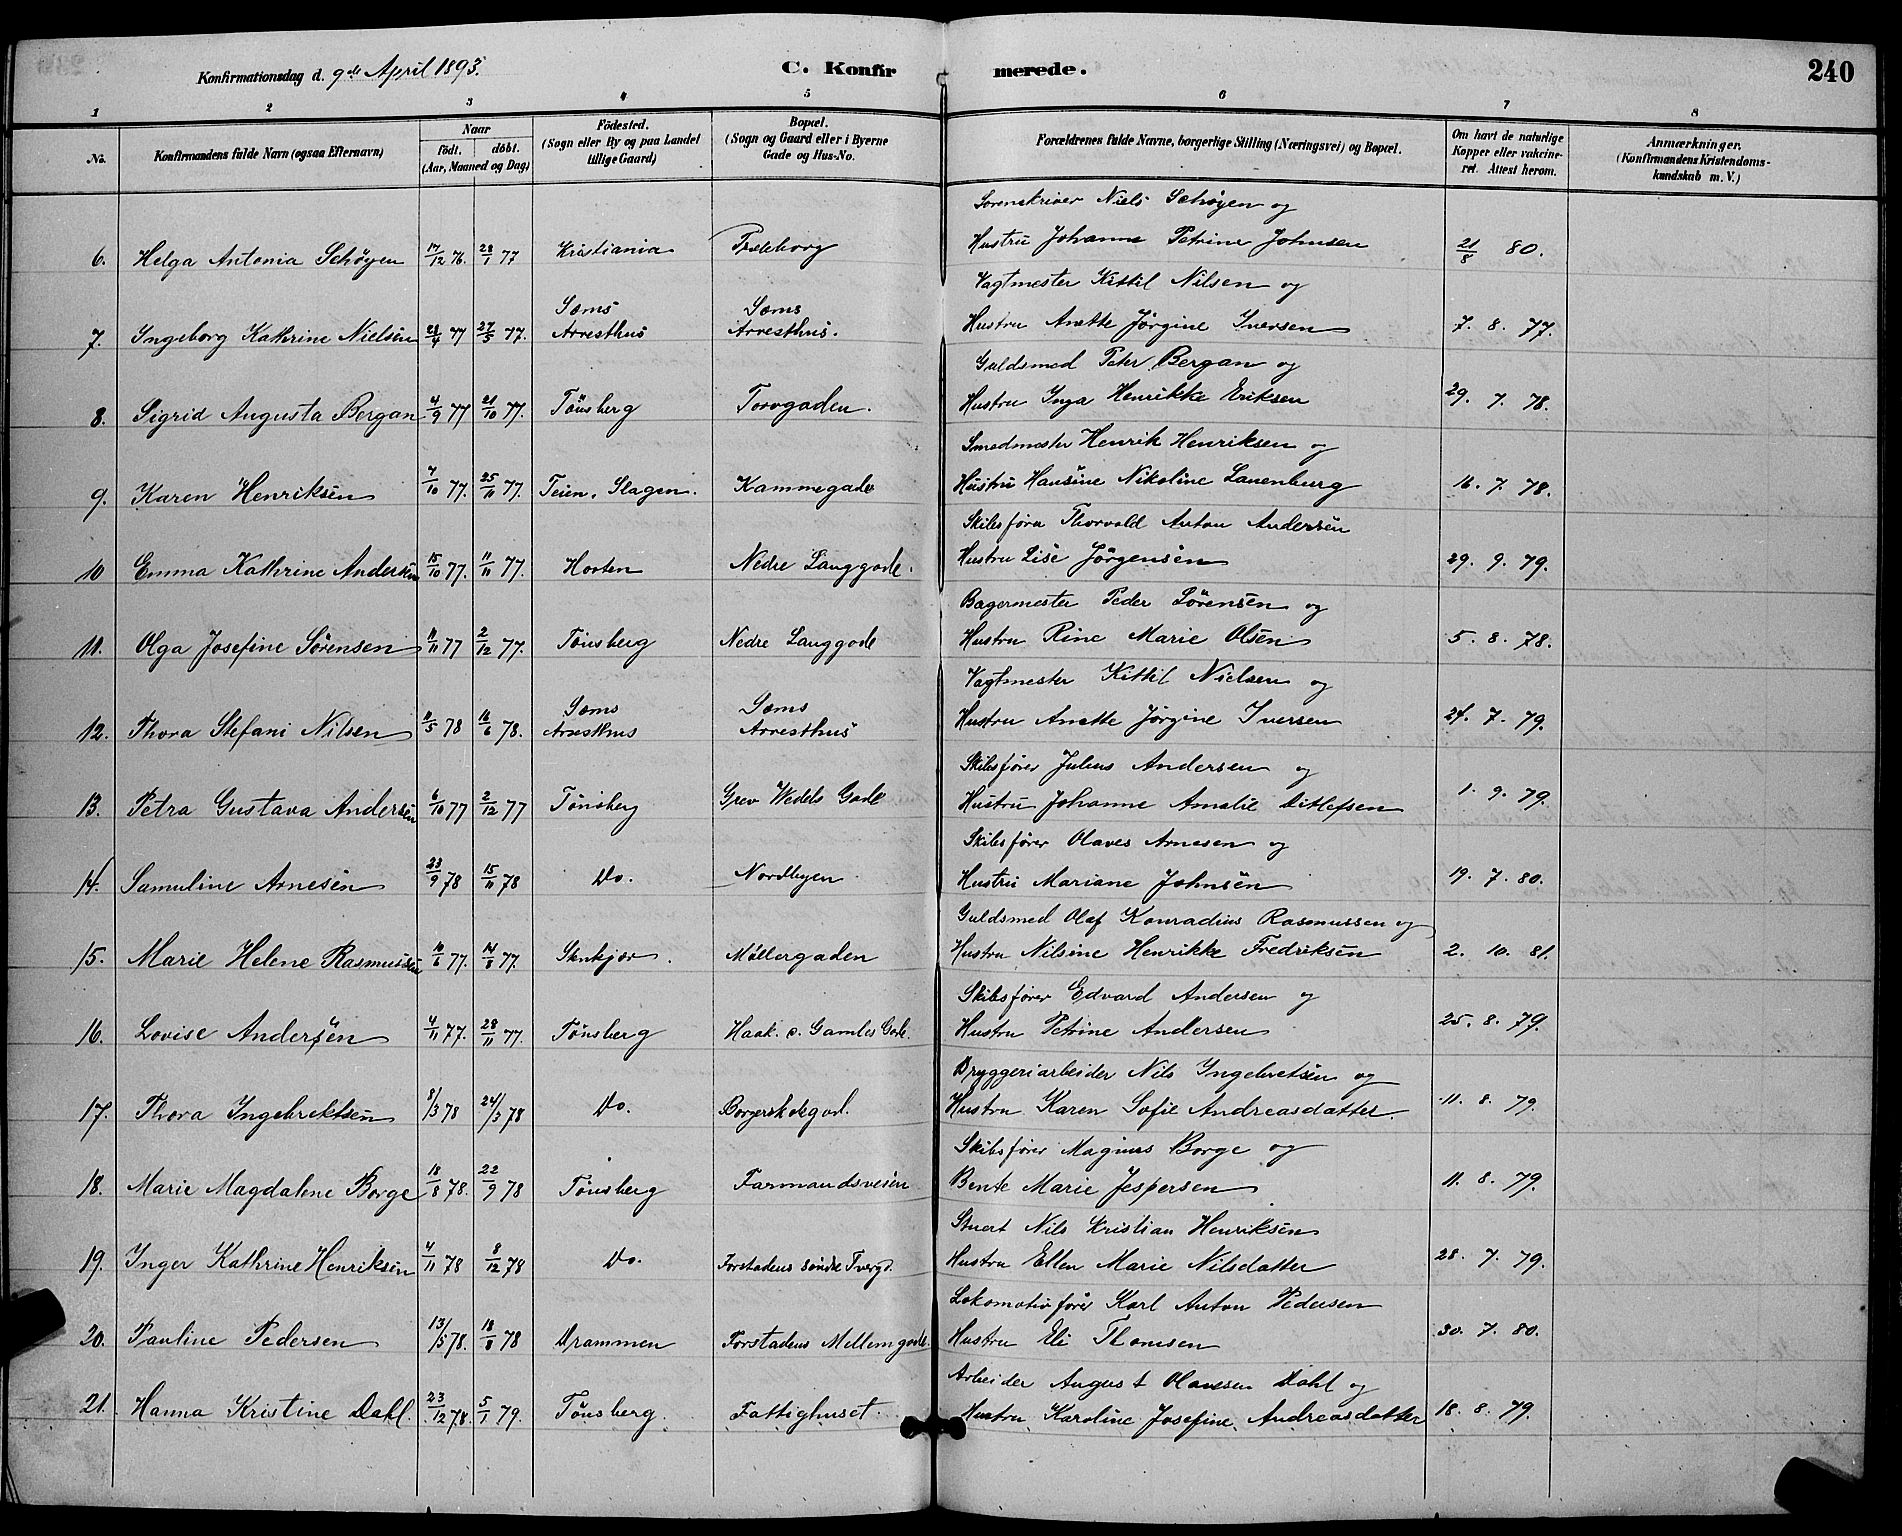 Konfirmationsdag d. 9de April 1893.
C. Konfirmerede.
240
1 2 3 4 5 6 7 8
No.
Konfirmandens fulde Navn (ogsaa Efternavn)
Naar
födt. döbt.
(Aar, Maaned og Dag)
Födested.
(Sogn eller By og paa Landet
tillige Gaard)
Bopæl.
(Sogn og Gaard eller i Byerne
Gade og Hus-No.
Forældrenes fulde Navne, borgerlige Stilling (Næringsvei) og Bopæl.
Om havt de naturlige
Kopper eller vakcine-
ret. Attest herom.
Anmærkninger.
(Konfirmandens Kristendoms-
kundskab m. V.)
Sorenskriver Niels Schøyen og
6. Helga Antonia Schøyen 17/12 76. 28/1 77 Kristiania Træleborg Hustru Johanne Petrine Johnsen 21/8 80.
Vagtmester Kittil Nilsen og
Sæms Sæms
7. Ingeborg Kathrine Nielsen 28/4 77 27/5 77. Arresthus Arresthus. Hustru Anette Jørgine Iversen 7. 8. 77.
Guldsmed Peter Bergan og
8. Sigrid Augusta Bergan 4/9 77 21/10 77. Tönsberg Torvgaden. Hustru Inga Henrikke Eriksen 29. 7. 78.
Smedmester Henrik Henriksen og
9. Karen Henriksen 7/10 77. 25/11 77. Teien, Slagen. Kammegade Hustru Hansine Nikoline Lauenburg 16. 7. 78.
Skibsfører Thorvald Anton Andersen
10 Emma Kathrine Andersen 15/10 77. 11/11 77. Horten Nedre Langgade. Hustru Lise Jörgensen 29. 9. 79.
Bagermester Peder Sörensen og
11. Olga Josefine Sörensen 11/11 77 2/12 77. Tönsberg Nedre Langgade Hustru Rine Marie Olsen 5. 8. 78.
Vagtmester Kittil Nielsen og
Sæms Sæms
12. Thora Stefani Nilsen 11/5 78 16/6 78. Arresthus Arresthus Hustru Anette Jørgine Iversen 24. 7. 79.
Skibsfører Julius Andersen og
13. Petra Gustava Andersen 6/10 77 2/12 77 Tönsberg Grev Wedels Gade Hustru Johanne Amalie Ditlefsen 1. 9. 79.
Skibsfører Olaves Arnesen og
14. Samuline Arnesen 23/9 78 15/11 78 Do. Nordbyen Hustru Mariane Johnsen 19. 7. 80.
Guldsmed Olaf Konradius Rasmussen og
15. Marie Helene Rasmussen 10/6 77. 14/8 77. Stenkjær. Möllergaden Hustru Nilsine Henrikke Fredriksen 2. 10. 81.
Skibsfører Edvard Andersen og
16. Lovise Andersen 4/11 77. 28/11 77. Tönsberg Haak. d. Gamles Gade. Hustru Petrine Andersen 25. 8. 79.
Bryggeriarbeider Nils Ingebretsen og
17. Thora Ingebrektsen 8/3 78 24/3 78 Do. Borgerskolegad. Hustru Karen Sofie Andreasdatter. 11. 8. 79.
Skibsfører Magnus Borge og
18. Marie Magdalene Borge 18/8 78. 22/9 78 Tönsberg Farmandsveien Bente Marie Jespersen 11. 8. 79.
Stuert Nils Kristian Henriksen
19. Inger Kathrine Henriksen 4/11 78 8/12 78 Do. Forstadens söndre Tvergd. Hustru Ellen Marie Nilsdatter 28. 7. 79.
Lokomotivfører Karl Anton Pedersen
20. Pauline Pedersen 13/5 78. 18/8 78 Drammen Forstadens Mellemgade. Hustru Eli Thomsen 30. 7. 80.
Arbeider August Olavesen Dahl og
21. Hanna Kristine Dahl. 23/12 78. 5/1 79. Tönsberg. Fattighuset. Hustru Karoline Josefine Andreasdatter 18. 8. 79.